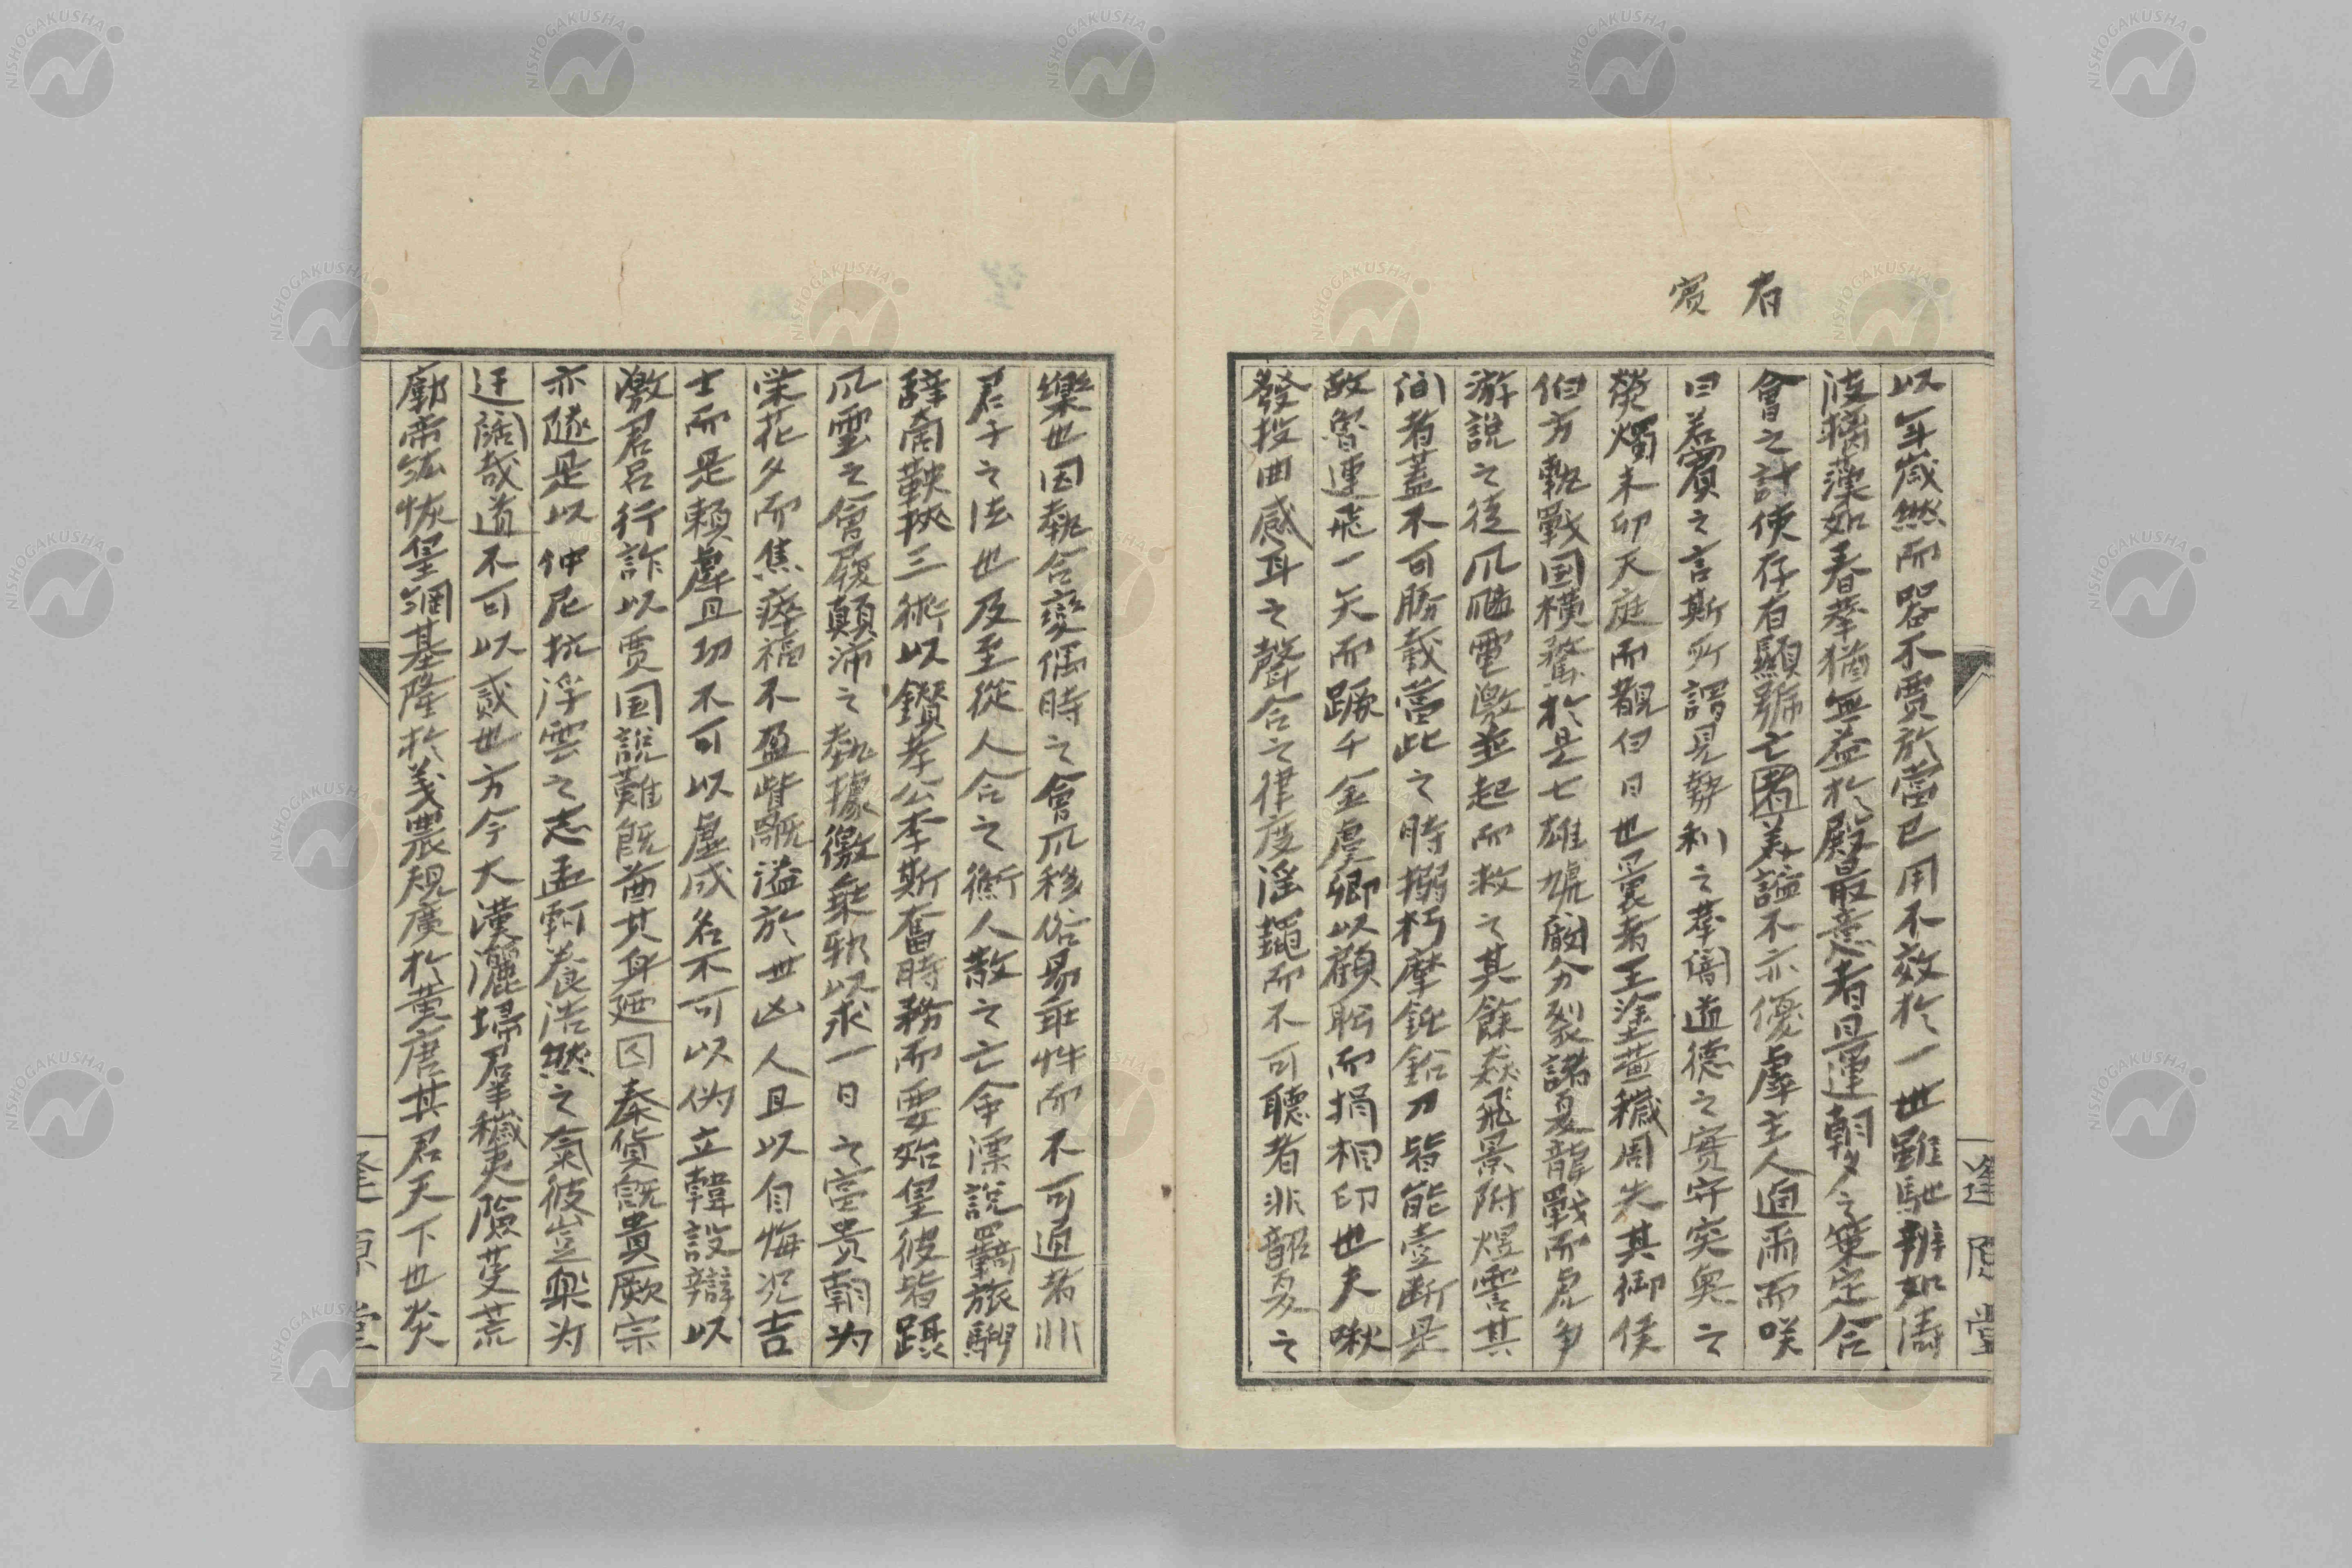 有
賓
以年歲然而器不賈於當己用不效於一世雖馳辯如濤
波摛藻如春華猶無益於殿最意者且運朝夕之策定合
會之計使存有顯號亡者美謚不亦優虖主人逌爾而咲
曰若賓之言斯所謂見勢利之華闇道德之實守突奧之
熒燭未卬天庭而覩白日也曩者王塗蕪穢周失其御侯
伯方軌戰国橫騖於是七雄虓闞分裂諸夏龍戰而虎争
游說之徒風颮電激並起而救之其餘猋飛景附煜霅其
間者蓋不可勝載當此之時搦朽摩鈍鉛刀皆能壹斷是
故魯連飛一矢而蹶千金虞卿以顧眄而捐相印也夫啾
發投曲感耳之聲合之律度淫䵷而不可聽者非韶夏之
樂也因埶合變偶時之會風移俗易乖忤而不可通者非
君子之法也及至從人合之衡人散之亡命漂說羈旅騁
辭商鞅挾三術以鑽孝公李斯奮時務而要始皇彼皆躡
風雲之會履顛沛之埶據徼乘邪以求一日之富貴朝为
榮花夕而焦瘁福不盈眥旤溢於世凶人且以自悔况吉
士而是賴虖且功不可以虛成名不可以偽立韓設辯以
激君吕行詐以賈国說難既酋其身乃囚秦貨既貴厥宗
亦隧是以仲尼抗浮雲之志孟軻養浩然之氣彼豈樂为
迂闊哉道不可以貳也方今大漢灑埽羣穢夷險芟荒
廓帝紘恢皇綱基隆於羲農規廣於黃唐其君天下也炎
逢原堂